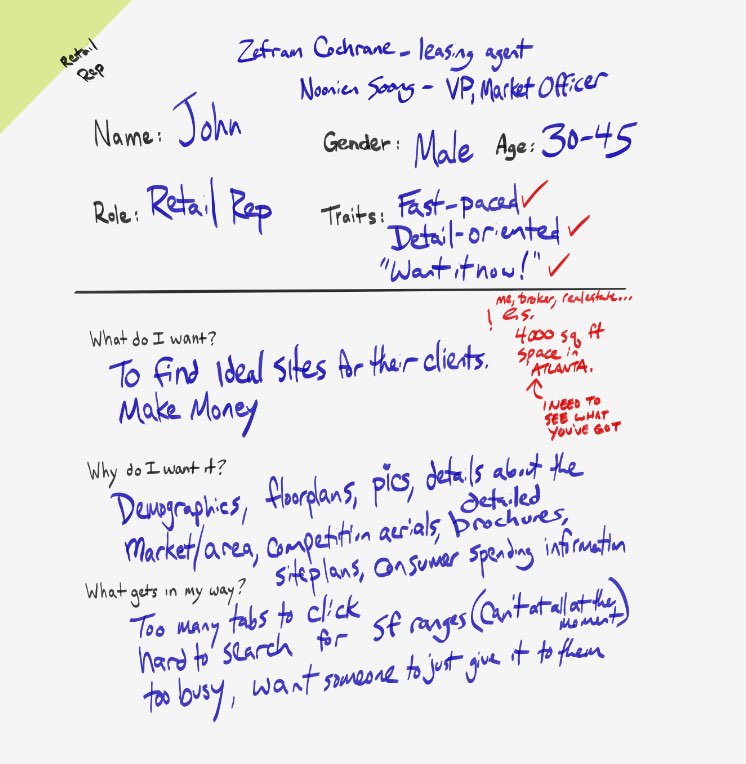 Retail
Rep
Zefram Cochrane - leasing agent
Noonien Soong - VP, Market Officer
Name: John
Gender: Male Age: 30-45
Role: Retail Rep
Traits: Fast-paced ✓
Detail-oriented ✓
"Want it now!" ✓
me, broker, realestate...
! e.s.
4000 sq ft
space in
ATLANTA.
↑
I NEED TO
SEE WHAT
YOU'VE GOT
What do I want?
To find Ideal Sites for their clients.
Make Money
Why do I want it?
Demographics, floorplans, pics, details about the
Market/area, competition aerials, detailed brochures,
siteplans, consumer spending information
What gets in my way?
Too many tabs to click
hard to search for sf ranges (Can't at all at the moment)
too busy, want someone to just give it to them